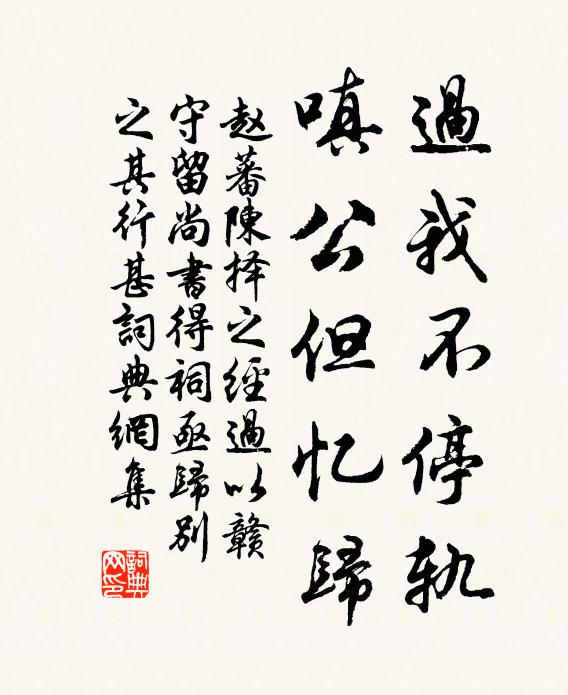 過我不停軌
嗔公但忆歸
赵蕃陳择之經過以贛
守留尚書得祠亟歸别
之其行甚詞典網集
詞典網印